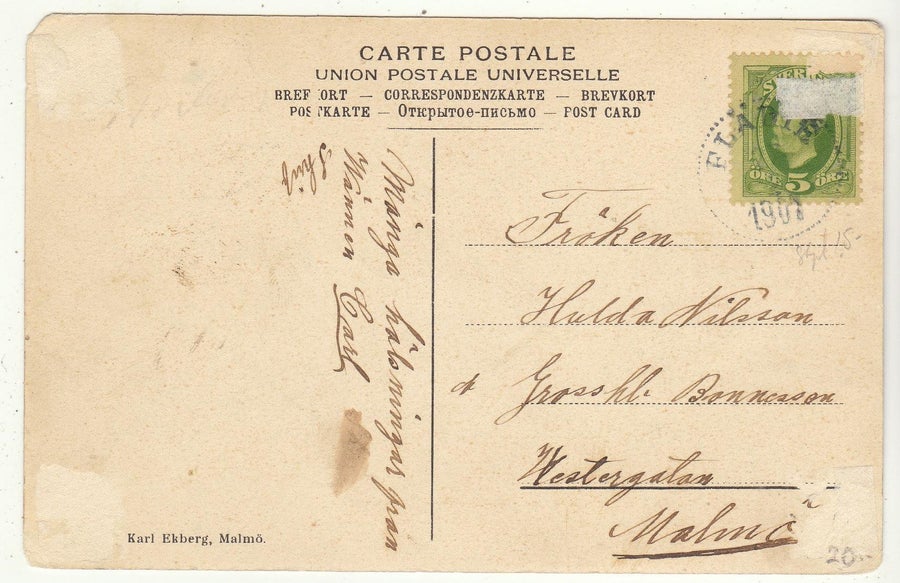 CARTE POSTALE
UNION POSTALE UNIVERSELLE
BREFKORT — CORRESPONDENZKARTE — BREVKORT
POSTKARTE — Открытое-письмо — POST CARD
5
ÖRE ÖRE
1901
Många hälsningar från
Wännen Carl
Skrif
Fröken
Hulda Nilsson
Grosshl. Bonnesson
Westergatan
Malmö
Karl Ekberg, Malmö.
20